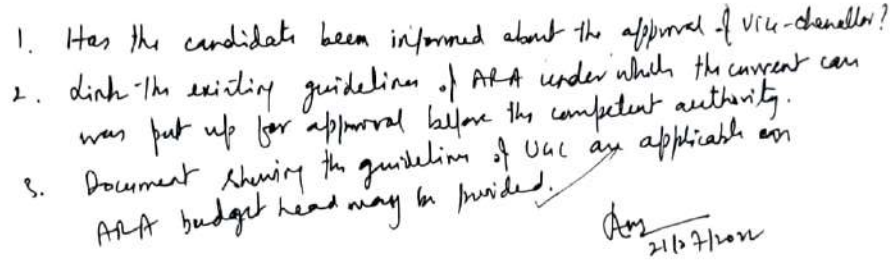 1. Has the candidate been informed about the approval of Vice-chancellor?
2. Link the existing guidelines of ARA under which the current case
was put up for approval before the competent authority.
3. Document showing the guidelines of UGC are applicable on
ARA budget head may be provided.
21/07/2022